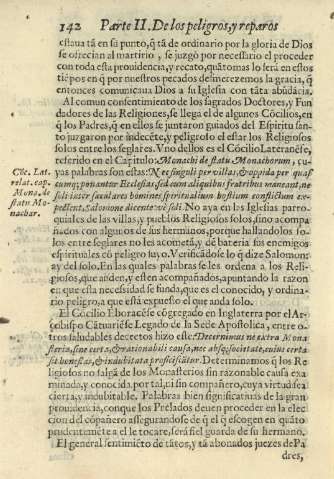 142 Parte II. De los peligros, y reparos
estaua tã en su punto, q̃ tã de ordinario por la gloria de Dios
se ofrecian al martirio, se juzgò por necessario el proceder
con toda esta prouidencia, y recato, quãto mas lo serà en estos
tiẽpos en q̃ por nuestros pecados desmerecemos la gracia, q̃
entonces comunicaua Dios a su Iglesia con tãta abũdãcia.
Al comun consentimiento de los sagrados Doctores, y Fun
dadores de las Religiones, se llega el de algunos Cõcilios, en
q̃ los Padres, q̃ en ellos se juntaron guiados del Espiritu san-
to juzgaron por indecẽte, y peligroso el estar los Religiosos
solos entre los seglares. Vno dellos es el Cõcilio Lateranẽse,
referido en el Capitulo: Monachi de statu Monachorum, cu-
yas palabras son estas: Nec singuli per villas, & oppida per quas
cumq; ponantur Ecclesias, sed cum aliquibus fratribus maneant, ne
soli inter seculares homines, spiritualium hostium conflictum ex-
pectent, Salomone dicente vae soli. No aya en las Iglesias parro-
quiales de las villas, y pueblos Religiosos solos, sino acompa
ñados con algunos de sus hermanos, porque hallandolos so-
los entre seglares no les acometã, y dẽ bateria sus enemigos
espirituales cõ peligro suyo. Verificãdose lo q̃ dize Salomon:
ay del solo. En las quales palabras se les ordena a los Reli-
giosos, que anden, y esten acompañados, apuntando la razon
en que esta necessidad se funda, que es el conocido, y ordina-
rio peligro, a que està expuesto el que anda solo.
El Cõcilio Eboracẽse cõgregado en Inglaterra por el Ar-
çobispo Cãtuariẽse Legado de la Sede Apostolica, entre o-
tros saludables decretos hizo este: Determinus ne extra Mona
steria, sine certa, & rationabili causa, nec absq; societate, cuius certa
sit honestas, & indubitata proficiscãtur. Determinamos q̃ los Re
ligiosos no salgã de los Monasterios sin razonable causa exa
minada, y conocida por tal, ni sin compañero, cuya virtud sea
cierta, y indubitable. Palabras bien significatiuas de la gran
prouidencia, con que los Prelados deuen proceder en la elec
cion del cõpañero assegurandose de q̃ el q̃ escogen en quãto
prudentemẽte a el le tocare, serà fiel guarda de su hermano.
El general sentimiẽto de tãtos, y tã abonados juezes de Pa
dres,
Cõc. Lat-
relat. cap.
Mona. de
statu Mo-
nachor.